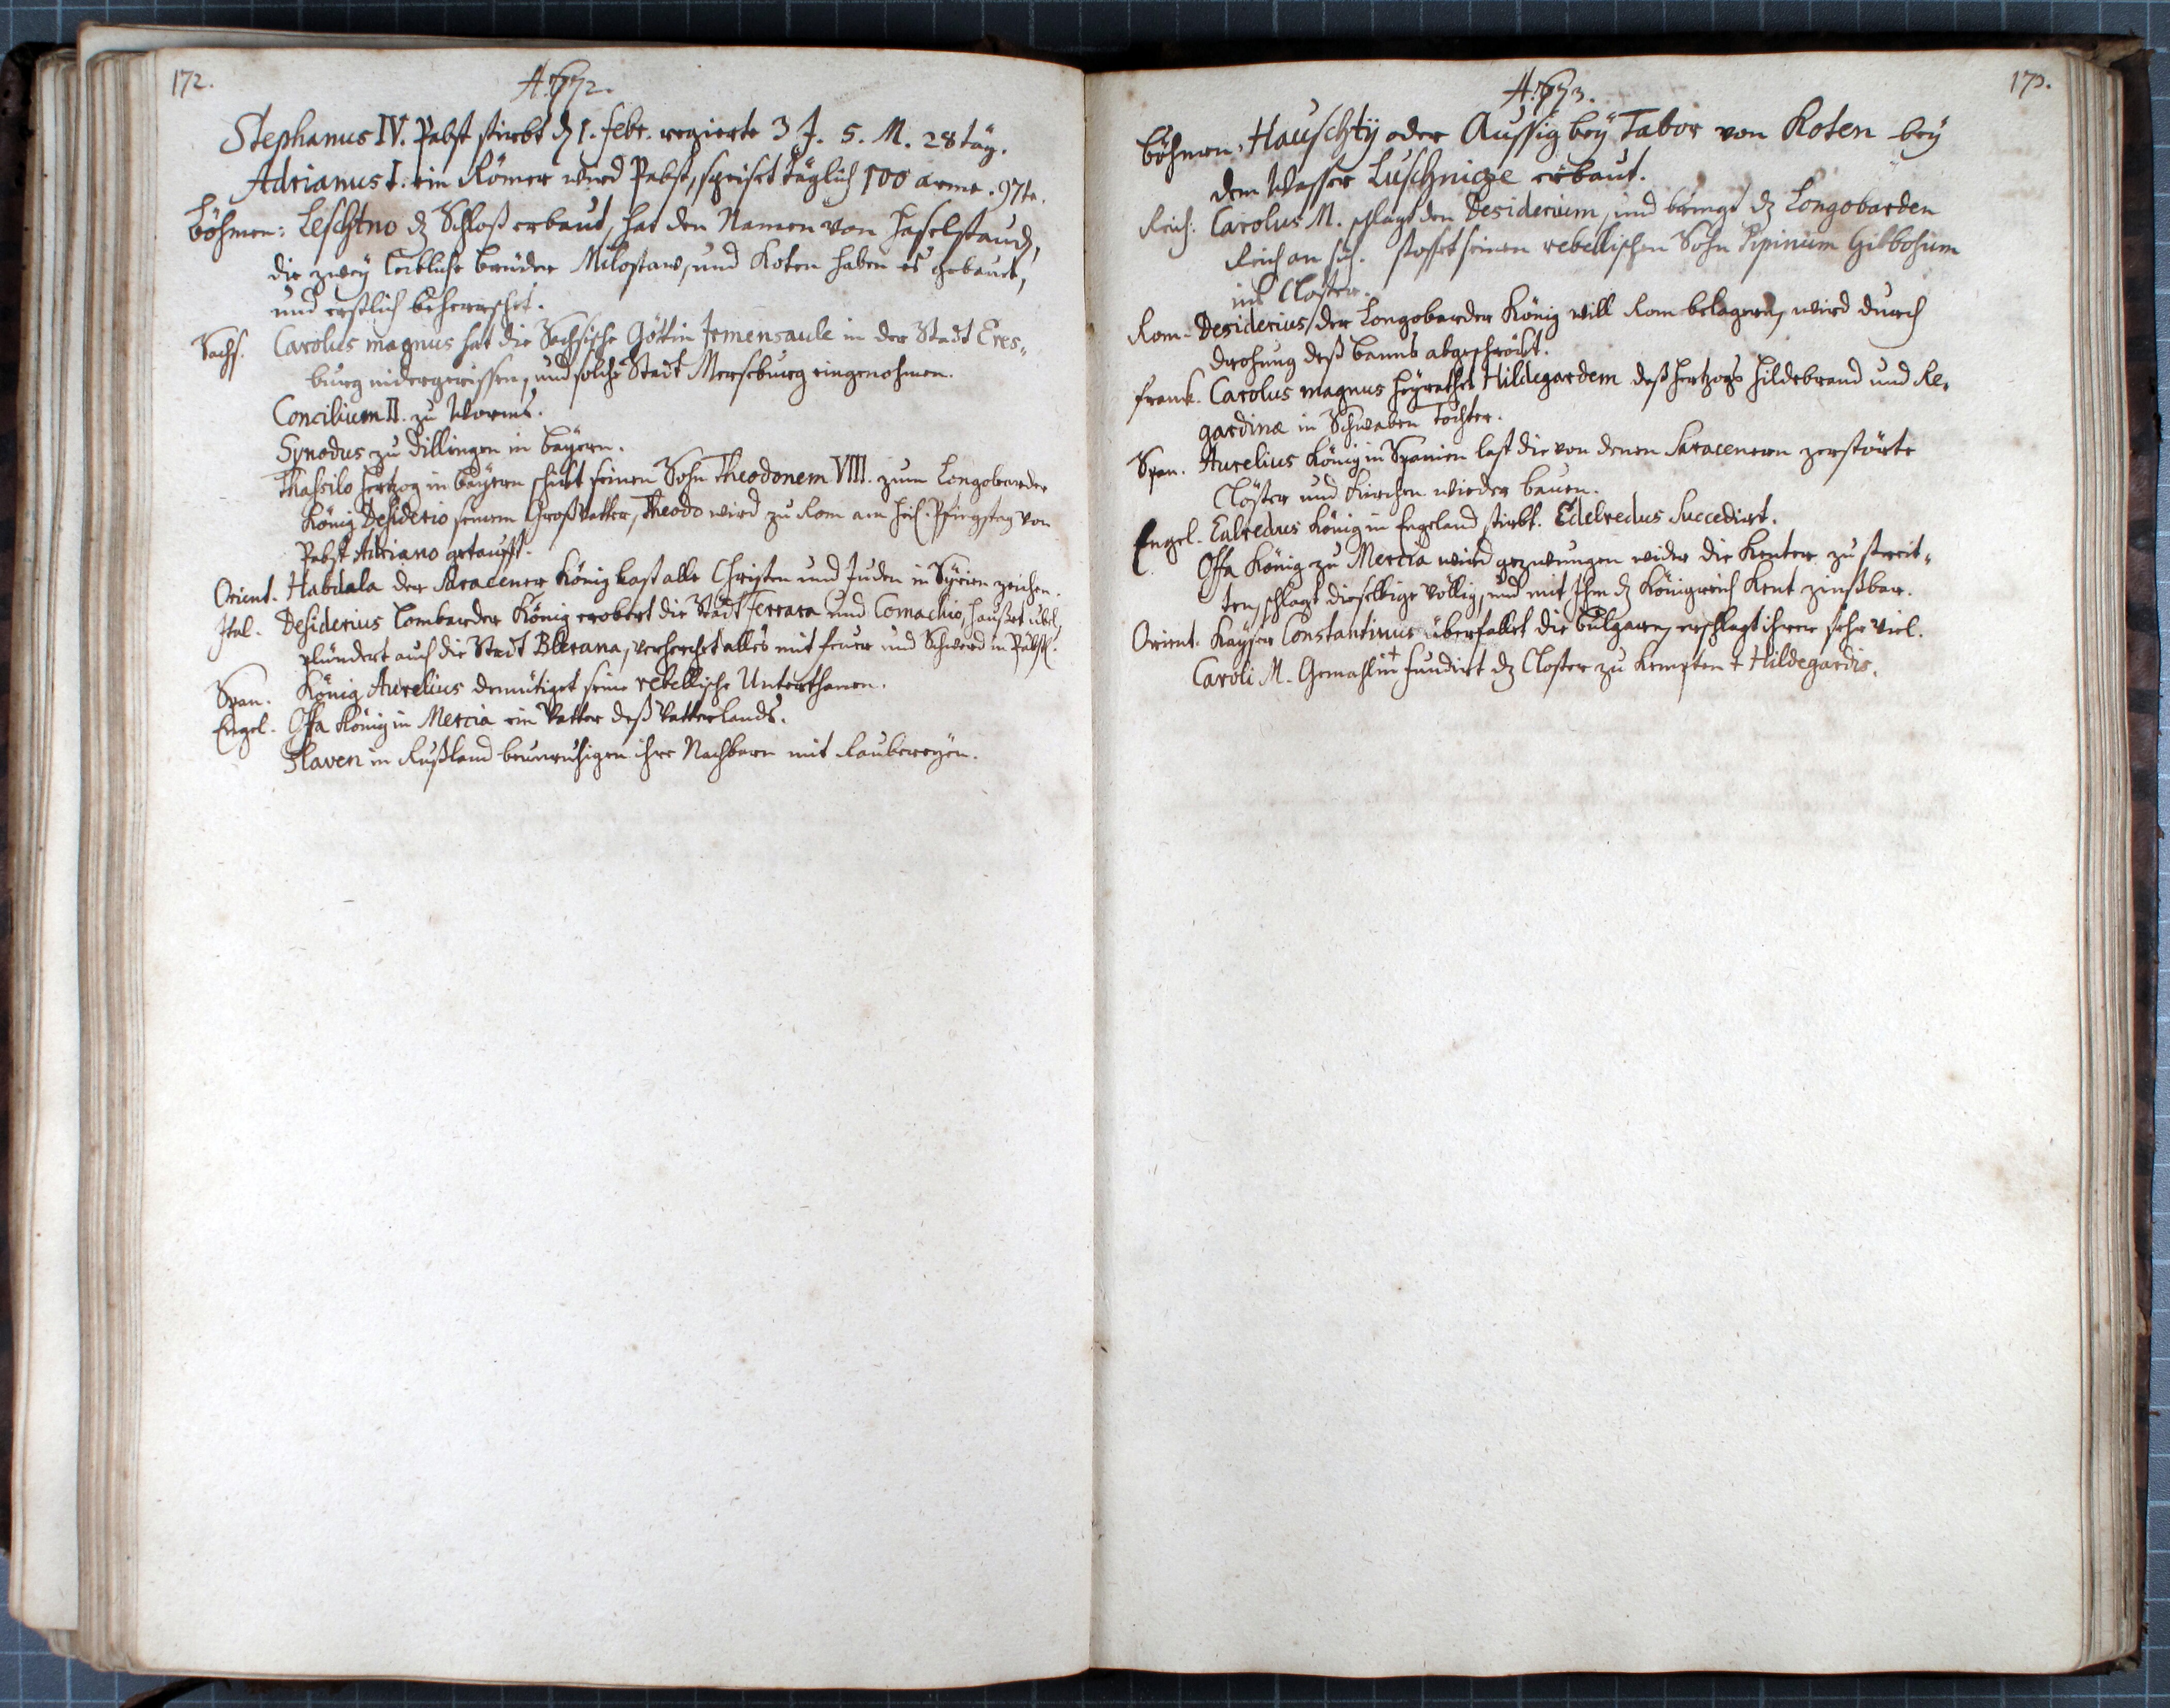 172.
A. 772.
Stephanus IV. Pabst stirbt dz 1. febr. regierte 3 J. 5. M. 28 täg.
Adrianus I. ein Römer wird Pabst, speiset täglich 100 arme. 97te.
Böhmen: Leschtno dz Schloß erbaut, hat den Namen von Haselstaud,
die zwey leibliche brüder Milostaw, und Koten haben es gebauet,
und erstlich beherrschet.
Sachs. Carolus magnus hat die Sachsische Göttin Irmensaule in der Stadt Eres„
burg nidergerissen, und solche Stadt Merseburg eingenohmen.
Concilium II. zu Worms.
Synodus zu Dillingen in Bayern.
Thassilo Hertzog in Bayern schikt seinen Sohn Theodonem VIII. zum Longobarder
König Desiderio seinem Großvatter, Theodo wird zu Rom am heil. Pfingstag von
Pabst Adriano getaufft.
Orient. Habdala der Saracener König last alle Christen und Juden in Syrien zeichen.
Ital. Desiderius Lombarder König erobert die Stadt Ferrara und Comachio, hauset übel,
plündert auch die Stadt Blerana, verherhet alles mit feuer und Schwerd im Päbstl.
Span. König Aurelius demütiget seine rebellische Unterthanen.
Engel. Offa König in Mercia ein Vatter deß Vatterlands.
Slaven in Rußland beunruhigen ihre Nachbarn mit Raubereyen.
173.
A. 773.
Böhmen: Hauschtij oder Aussig bey Tabor von Koten bey
dem Wasser Luschnicze erbaut.
Reich. Carolus M. schlagt den Desiderium, und bringt dz Longobarden
Reich an sich. stosset seinen rebellischen Sohn Pipinum Gibbosum
ins Closter.
Rom. Desiderius/der Longobarder König will Rom belagern, wird durch
drohung deß banns abgeschröckt.
Frank. Carolus magnus heyrathet Hildegardem deß Hertzogs Hildebrand und Re„
gardinæ in Schwaben Tochter.
Span. Aurelius König in Spanien last die von denen Saracenern zerstörte
Clöster und Kirchen wieder bauen.
Engel. Ealredus König in Engeland stirbt. Edelredus succedirt.
Offa König zu Mercia wird gezwungen wider die Kenter zu streit„
ten, schlagt dieselbige völlig, und mit Ihm dz Königreich Kent zinßbar.
Orient. Kayser Constantinus überfallet die Bulgaren, erschlagt ihrer sehr viel.
Caroli M. Gemahlin + fundirt dz Closter zu Kempten + Hildegardis.